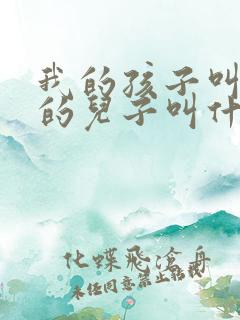 我的孩子叫
的儿子叫什
化蝶飞沧舟
未经同意禁止转载